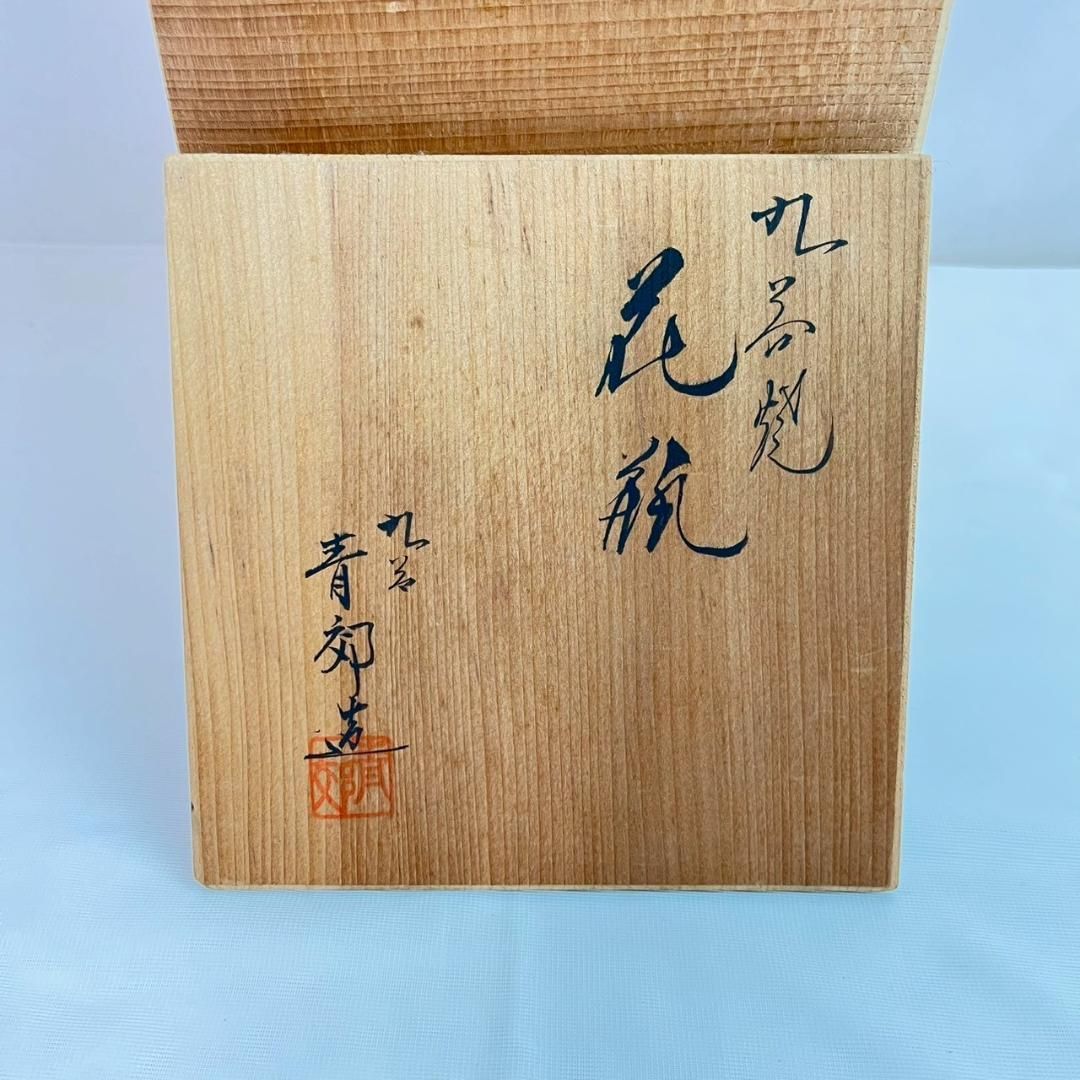 九谷焼
花瓶
九谷
青郊造